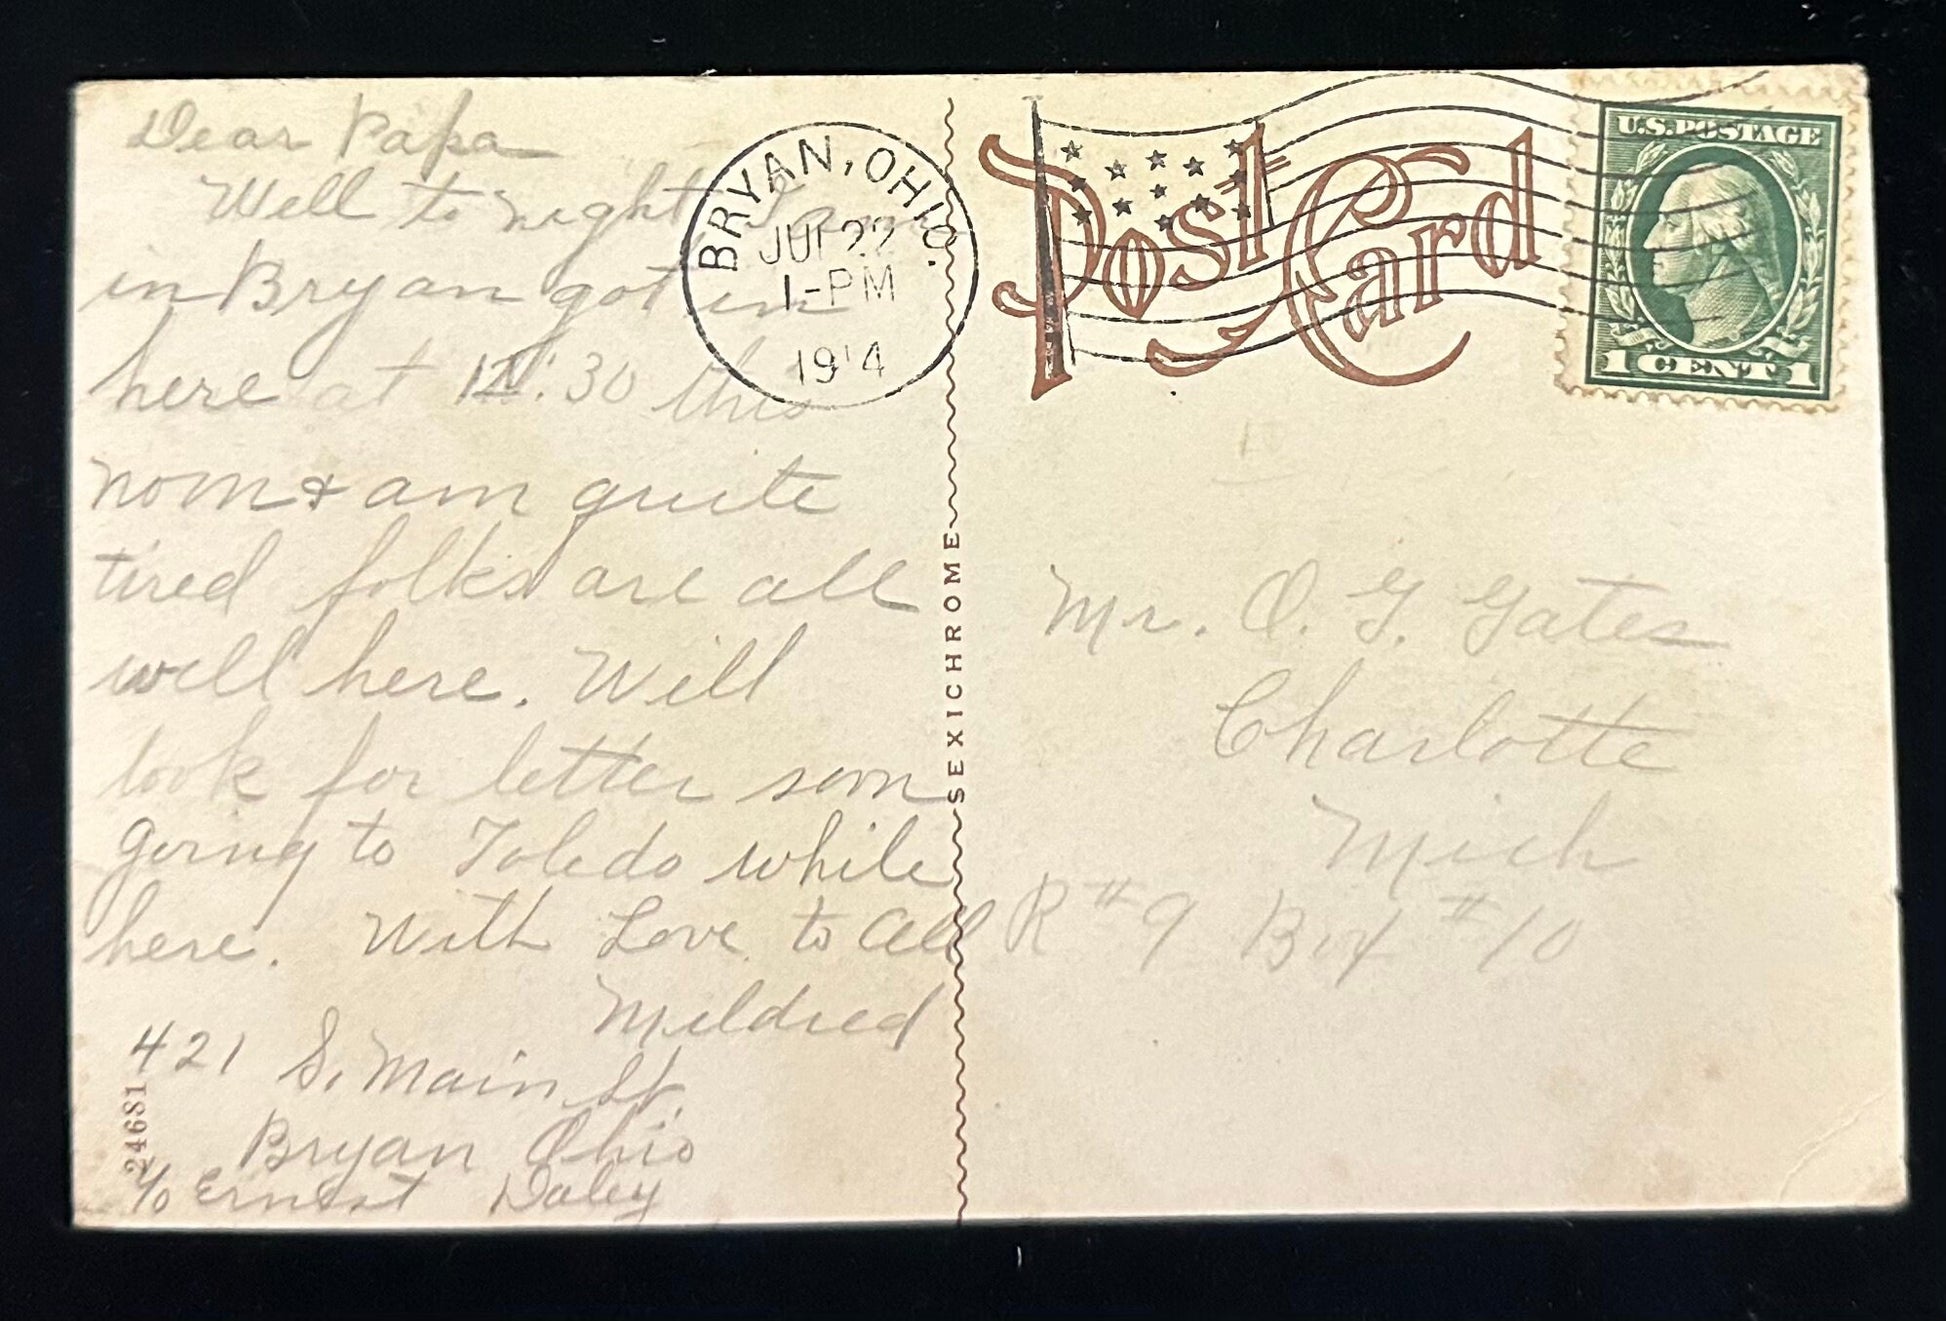 Dear Papa
Well to night I am
in Bryan got in
here at 12:30 this
noon & am quite
tired folks are all
well here. Will
look for letter soon
going to Toledo while
here. With Love to all
Mildred
421 S. Main St.
Bryan Ohio
c/o Ernest Daley
24681
SEXICHROME
BRYAN, OHIO.
JUL 22
1-PM
1914
Post Card
U.S. POSTAGE
1 CENT 1
Mr. O. G. Gates
Charlotte
Mich
R #9 Box #10